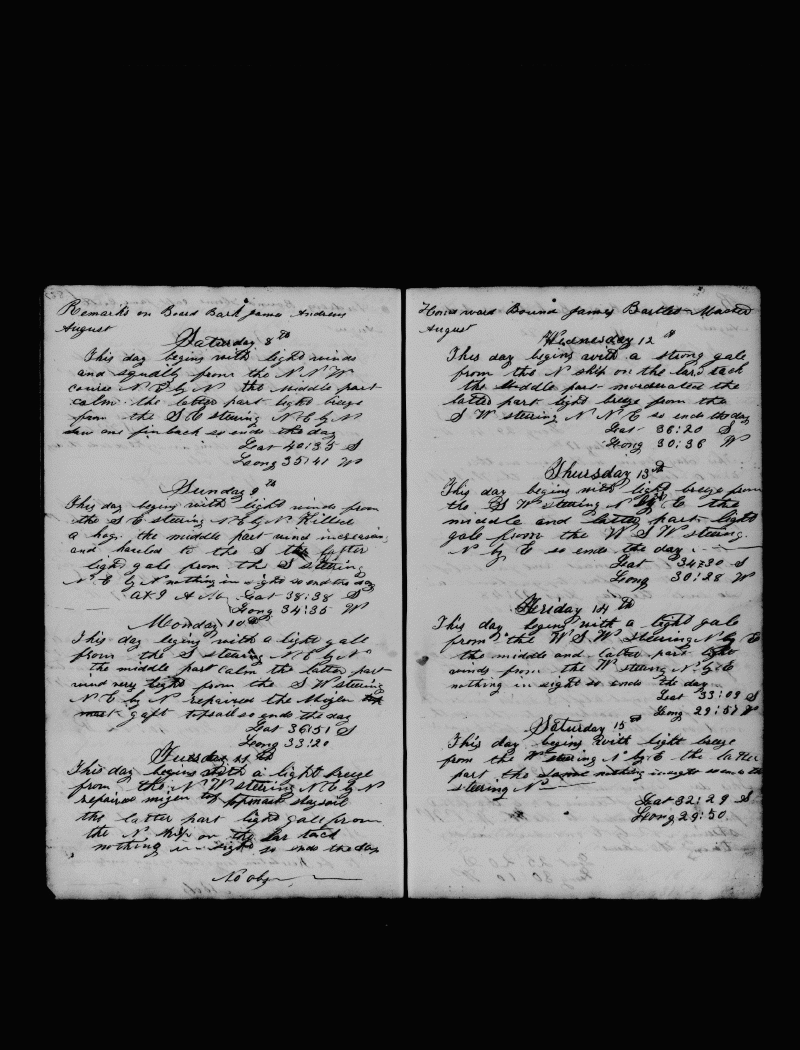 Remarks on Board Bark James Andrews
August
Saturday 8th
This day begins with light winds
and squally from the N N W
course N E by N the middle part
calm the latter part light breeze
from the S E steering N E by N
saw one finback so ends the day
Lat 40:35 S
Long 35:41 W
Sunday 9th
This day begins with light winds from
the S E steering N E by N Killed
a hog. the middle part wind increasing
and hauled to the S the latter
light gale from the S steering
N E by N nothing in sight so ends the day
at 9 A M Lat 38:38 S
Long 34:35 W
Monday 10th
This day begins with a light gale
from the S steering N E by N
the middle part calm the latter part
wind very light from the S W steering
N E by N repaired the Mizen top
mask gaft topsail so ends the day
Lat 36:51 S
Long 33:20
Tuesday 11th
This day begins with a light breeze
from the N W steering N E by N
repaired mizen staysail
the latter part light gale from
the N ship on the lar tack
nothing in sight so ends the day
No obs
Homeward Bound James Bartlet Master
August
Wednesday 12th
This day begins with a strong gale
from the N ship on the lard tack
the Middle part moderated the
latter part light breeze from the
S W steering N N E so ends the day
Lat 36:20 S
Long 30:36 W
Thursday 13th
This day begins with light breeze from
the S W steering N by E the
middle and latter part light
gale from the W S W steering
N by E so ends the day
Lat 34:30 S
Long 30:28 W
Friday 14th
This day begins with a light gale
from the W S W steering N by E
the middle and latter part light
winds from the W steering N by E
nothing in sight so ends the day
Lat 33:09 S
Long 29:57 W
Saturday 15th
This day begins with light breeze
from the W steering N by E the latter
part the nothing in sight so ends the
steering N
Lat 32:29 S
Long 29:50